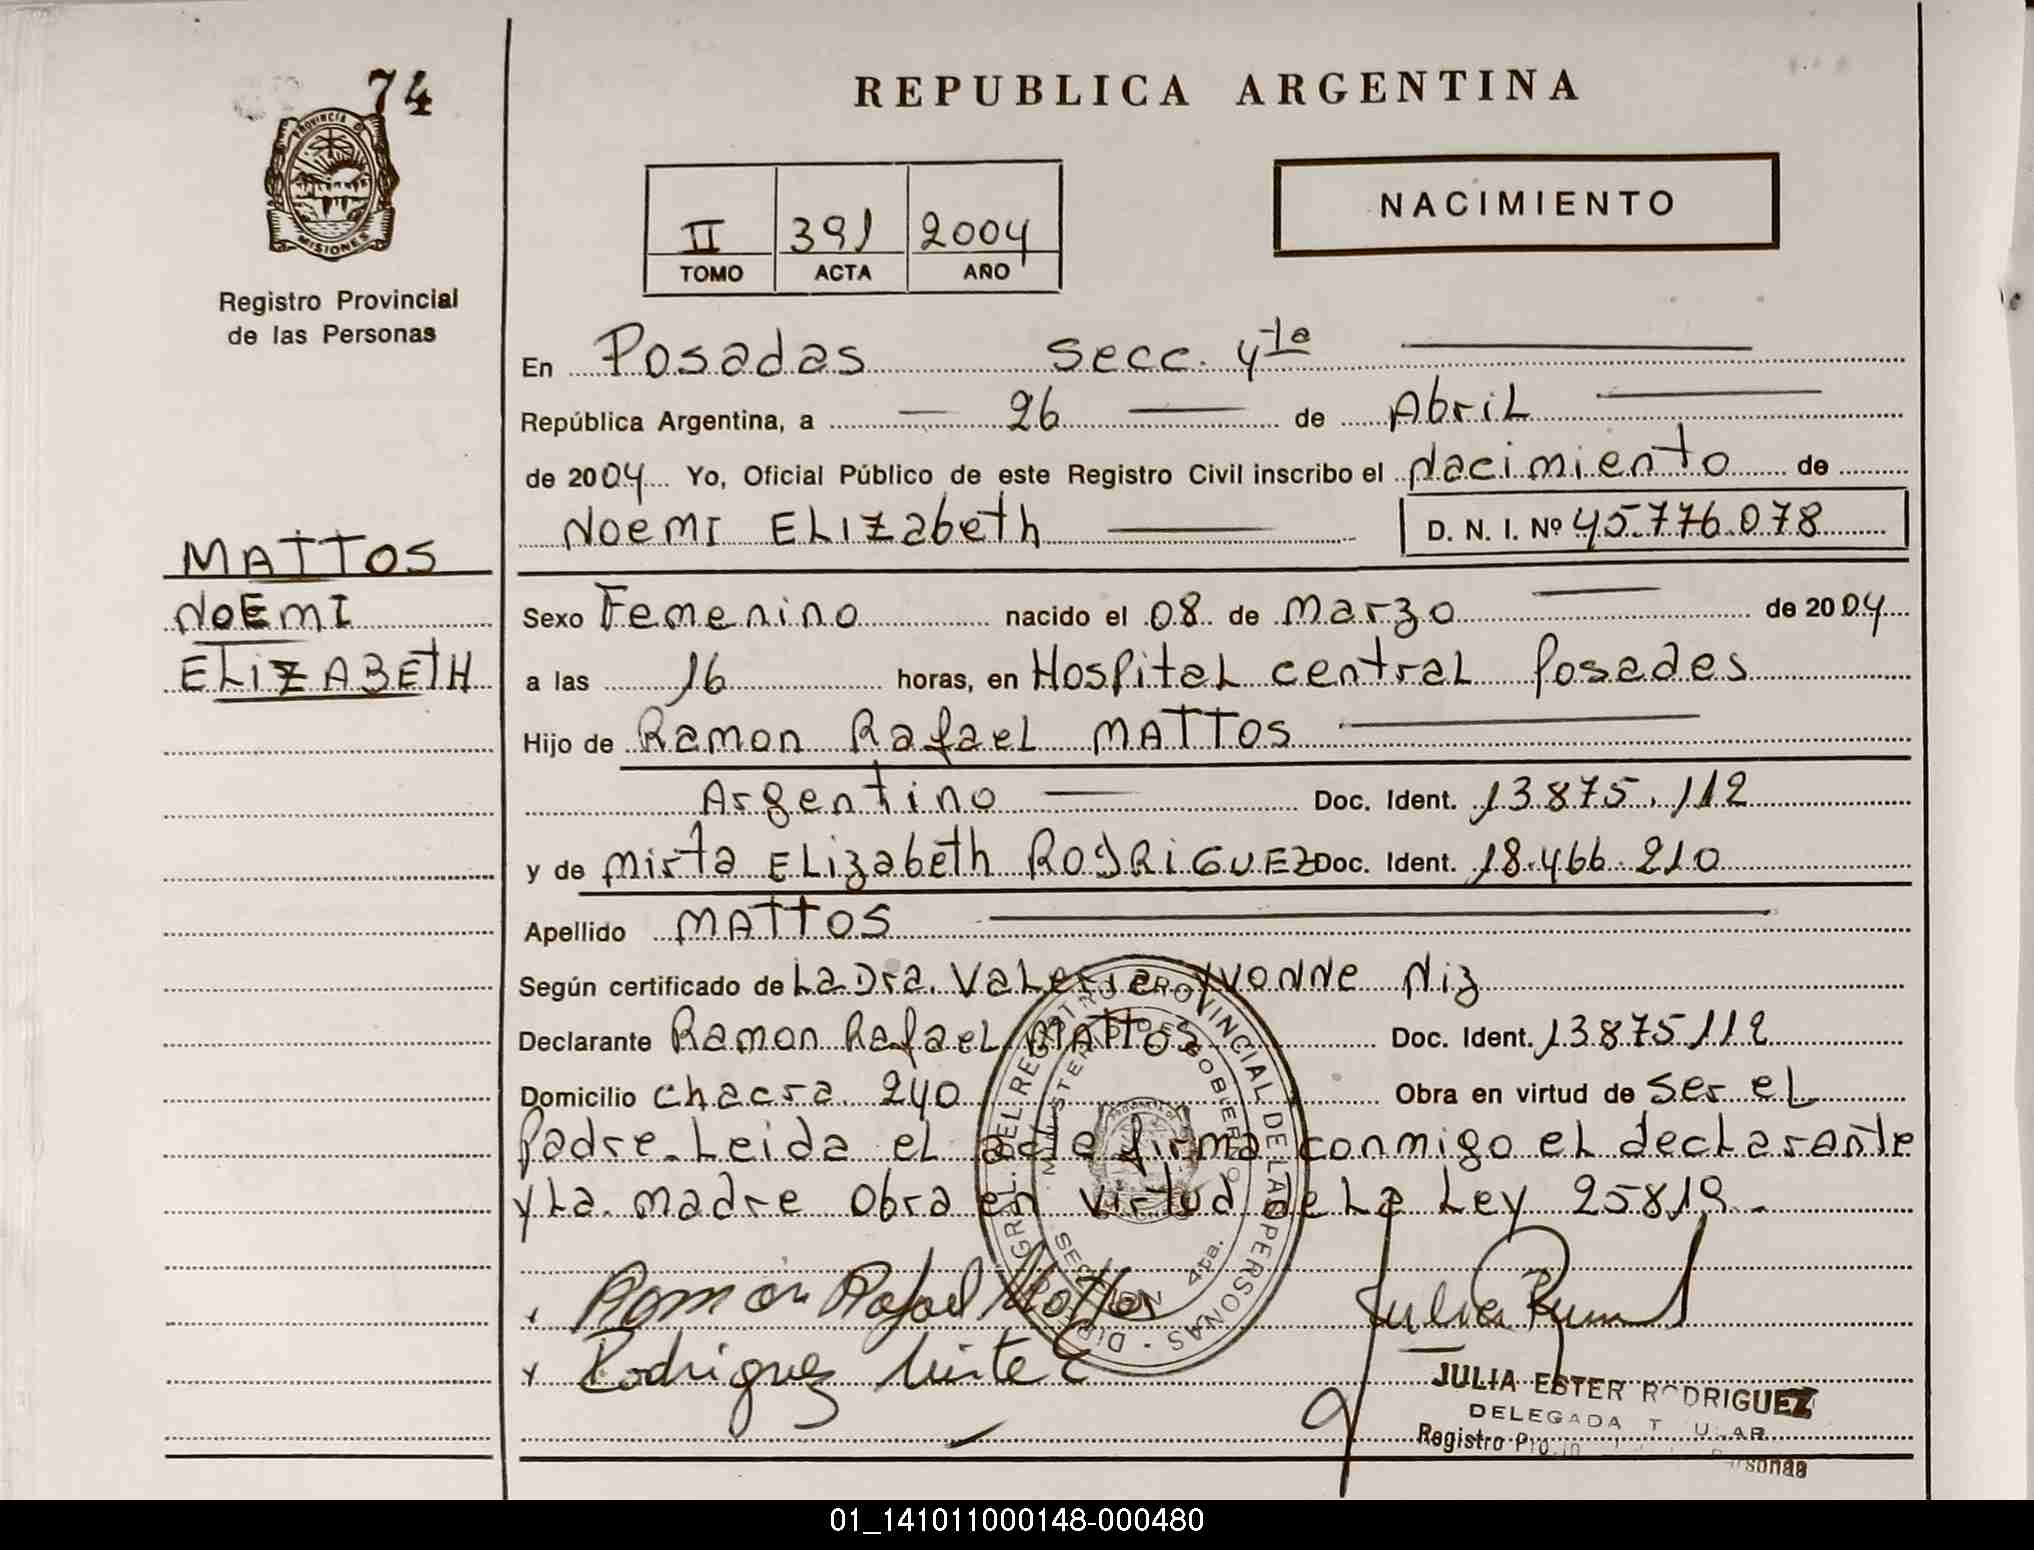 74
PROVINCIA DE
MISIONES
Registro Provincial
de las Personas
MATTOS
NOEMI
ELIZABETH
REPUBLICA ARGENTINA
II 391 2004
TOMO ACTA AÑO
NACIMIENTO
En Posadas secc. 4ta
República Argentina, a 26 de Abril
de 2004 Yo, Oficial Público de este Registro Civil inscribo el Nacimiento de
Noemi Elizabeth D. N. I. Nº 45.776.078
Sexo Femenino nacido el 08 de Marzo de 2004
a las 16 horas, en Hospital central Posadas
Hijo de Ramon Rafael MATTOS
Argentino Doc. Ident. 13.875.112
y de mirta Elizabeth RODRIGUEZ Doc. Ident. 18.466.210
Apellido MATTOS
Según certificado de La Dra. Valeria Yvonne Niz
Declarante Ramon Rafael MATTOS Doc. Ident. 13.875.112
Domicilio chacra 240 Obra en virtud de ser el
Padre. Leida el acta firma conmigo el declarante
y La madre Obra en virtud de La Ley 25819.-
DIR. GRAL. DEL REGISTRO PROVINCIAL DE LAS PERSONAS
MINISTERIO DE GOBIERNO
SECCION 4ta.
Ramón Rafael Mattos
Rodriguez Mirta E
JULIA ESTER RODRIGUEZ
DELEGADA TITULAR
Registro Personas
01_141011000148-000480